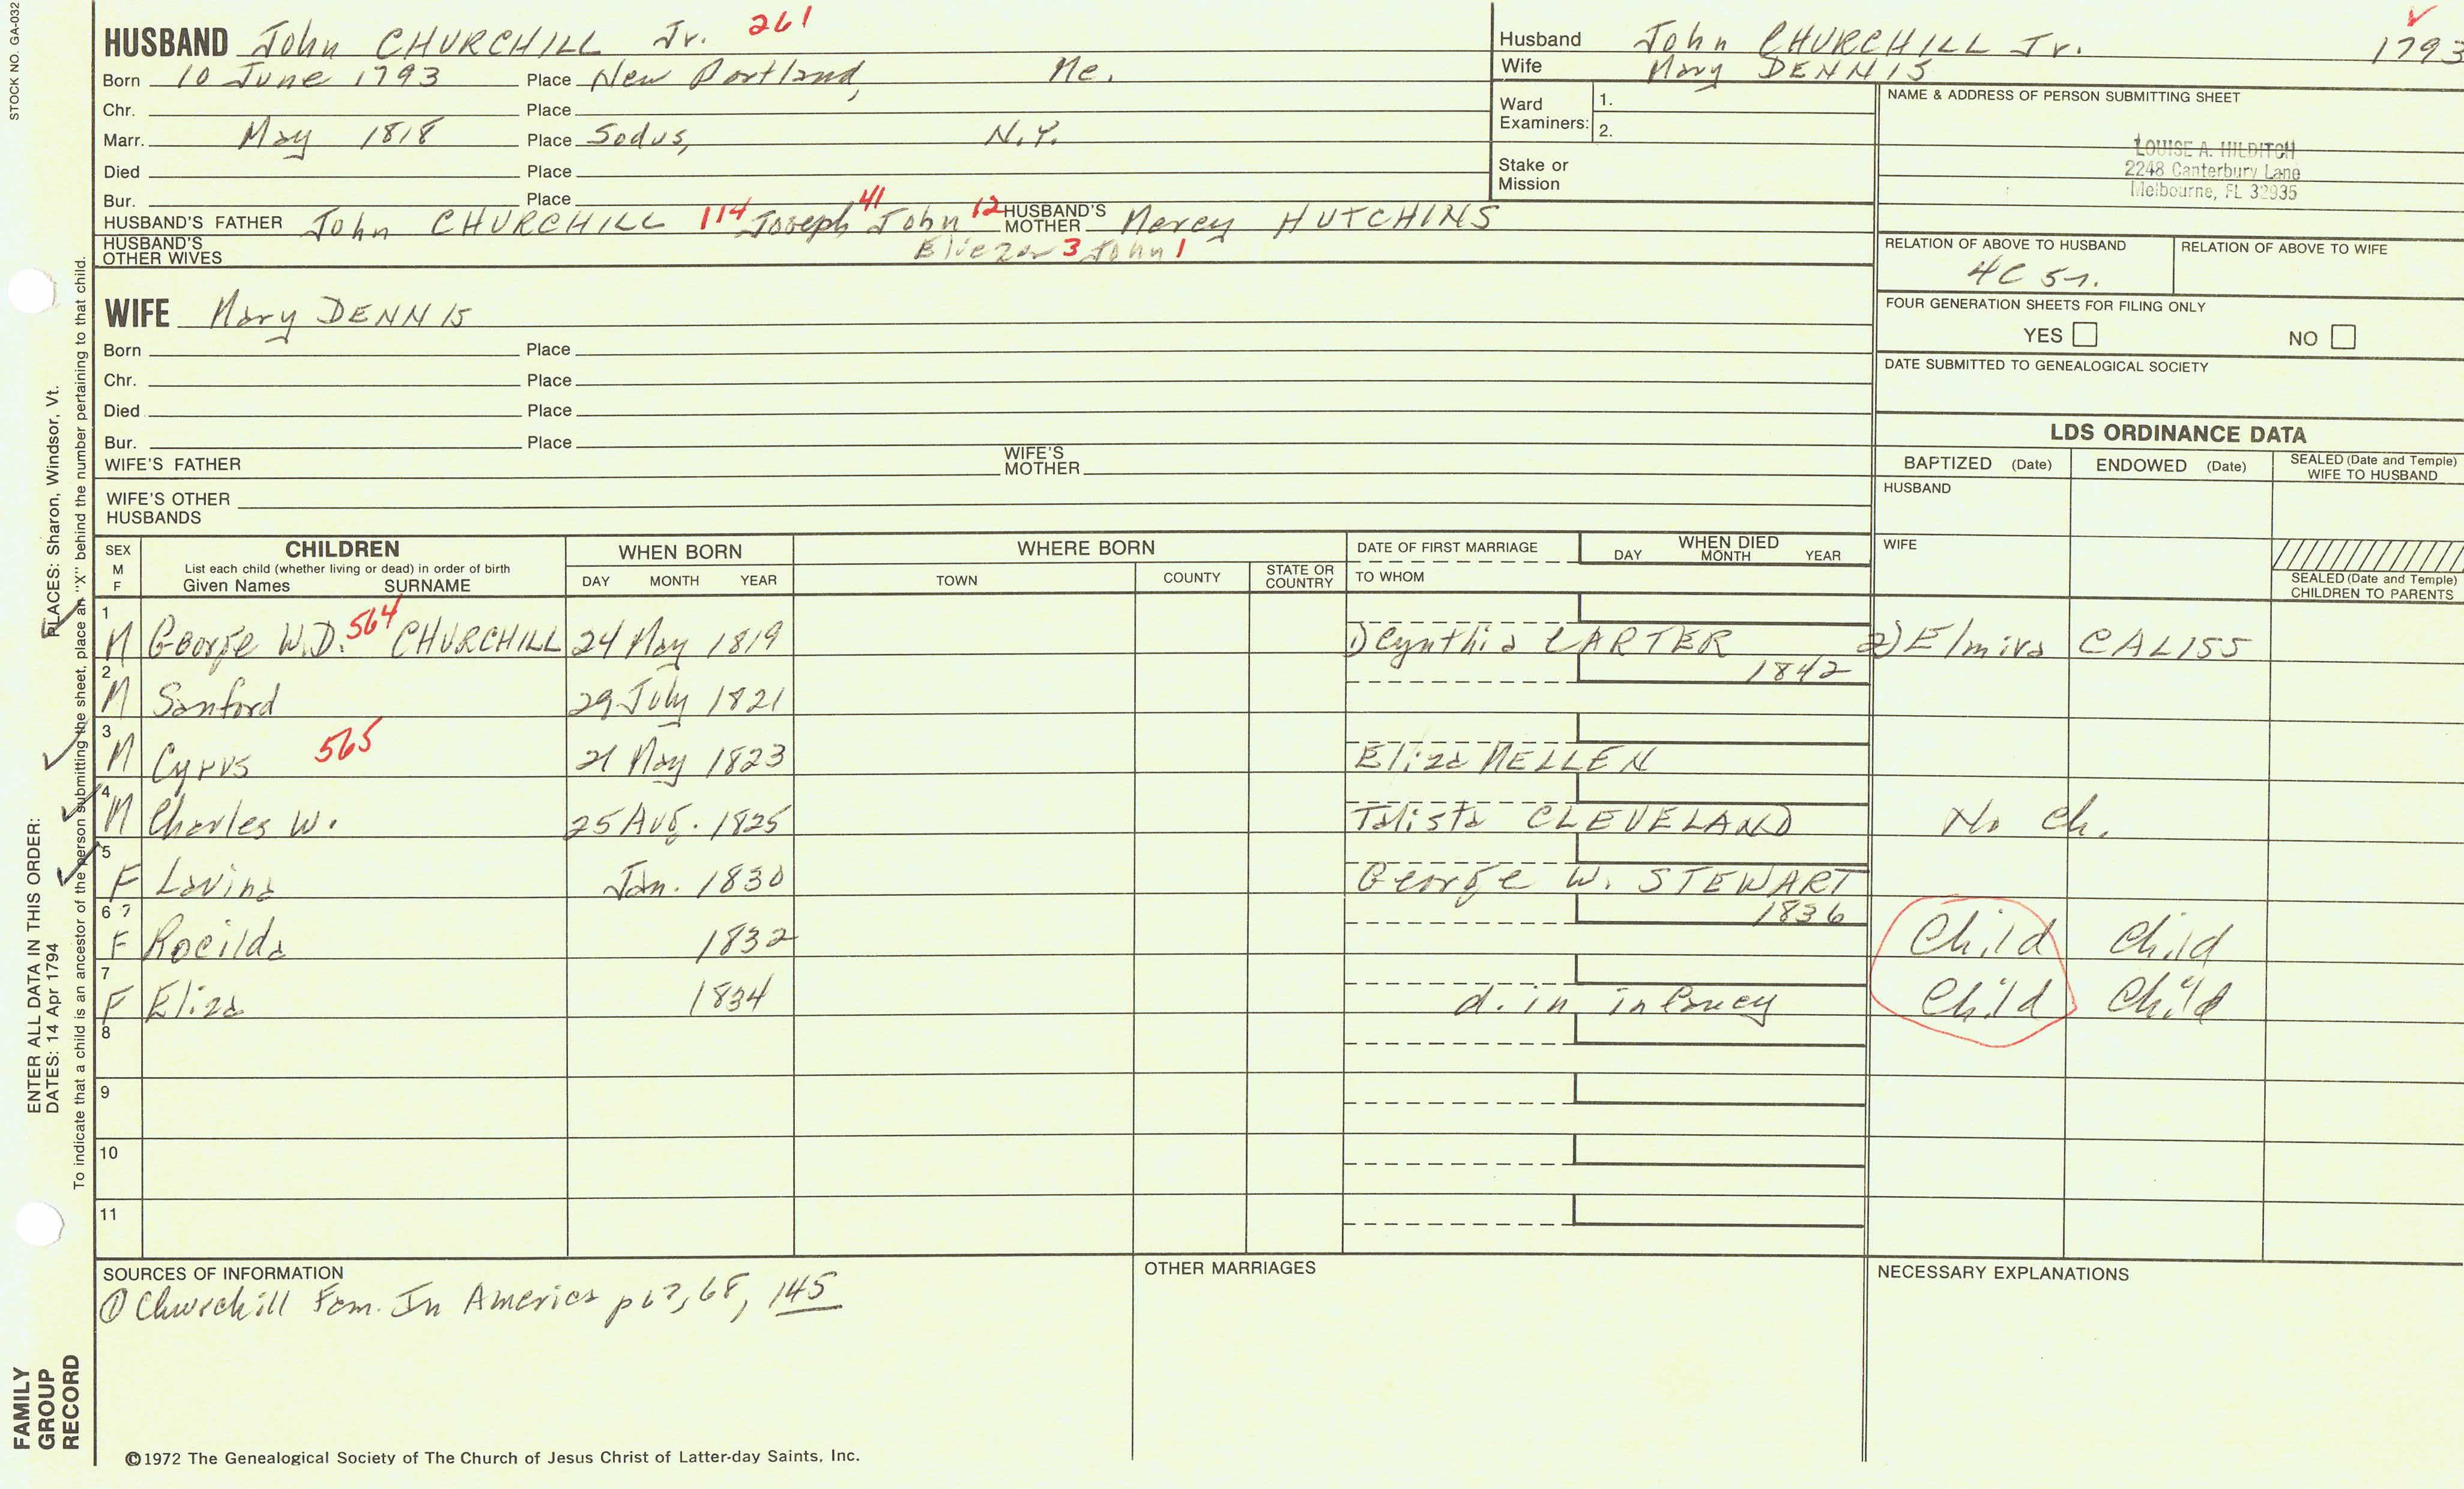 STOCK NO. GA-032
HUSBAND John CHURCHILL Jr. 261
Born 10 June 1793 Place New Portland, Me.
Chr. Place
Marr. May 1818 Place Sodus, N.Y.
Died Place
Bur. Place
HUSBAND'S FATHER John CHURCHILL 114 Joseph 41 John 12 HUSBAND'S MOTHER Mercy HUTCHINS
HUSBAND'S OTHER WIVES Eliezer 3 John 1
Husband John CHURCHILL Jr. 1793
Wife Mary DENNIS
Ward Examiners: 1.
2.
Stake or Mission
NAME & ADDRESS OF PERSON SUBMITTING SHEET
LOUISE A. HILDITCH
2248 Canterbury Lane
Melbourne, FL 32935
RELATION OF ABOVE TO HUSBAND RELATION OF ABOVE TO WIFE
4C 5r.
FOUR GENERATION SHEETS FOR FILING ONLY
YES NO
DATE SUBMITTED TO GENEALOGICAL SOCIETY
WIFE Mary DENNIS
Born Place
Chr. Place
Died Place
Bur. Place
WIFE'S FATHER WIFE'S MOTHER
WIFE'S OTHER HUSBANDS
LDS ORDINANCE DATA
BAPTIZED (Date) ENDOWED (Date) SEALED (Date and Temple) WIFE TO HUSBAND
HUSBAND
WIFE
SEALED (Date and Temple) CHILDREN TO PARENTS
SEX M F
CHILDREN
List each child (whether living or dead) in order of birth
Given Names SURNAME
WHEN BORN
DAY MONTH YEAR
WHERE BORN
TOWN COUNTY STATE OR COUNTRY
DATE OF FIRST MARRIAGE
TO WHOM
WHEN DIED
DAY MONTH YEAR
1 M George W.D. 564 CHURCHILL 24 May 1819 1) Cynthia CARTER 2) Elmira CALISS
2 M Sanford 29 July 1821 1842
3 M Cyrus 565 21 May 1823 Eliza MELLEN
4 M Charles W. 25 Aug. 1825 Talista CLEVELAND No Ch.
5 F Lavina Jan. 1830 George W. STEWART
6 7 F Rocilda 1832 1836 Child Child
7 F Eliza 1834 d. in infancy Child Child
8
9
10
11
SOURCES OF INFORMATION
① Churchill Fam. In America p 67, 68, 145
OTHER MARRIAGES
NECESSARY EXPLANATIONS
©1972 The Genealogical Society of The Church of Jesus Christ of Latter-day Saints, Inc.
FAMILY GROUP RECORD
ENTER ALL DATA IN THIS ORDER:
DATES: 14 Apr 1794
PLACES: Sharon, Windsor, Vt.
To indicate that a child is an ancestor of the person submitting the sheet, place an "X" behind the number pertaining to that child.